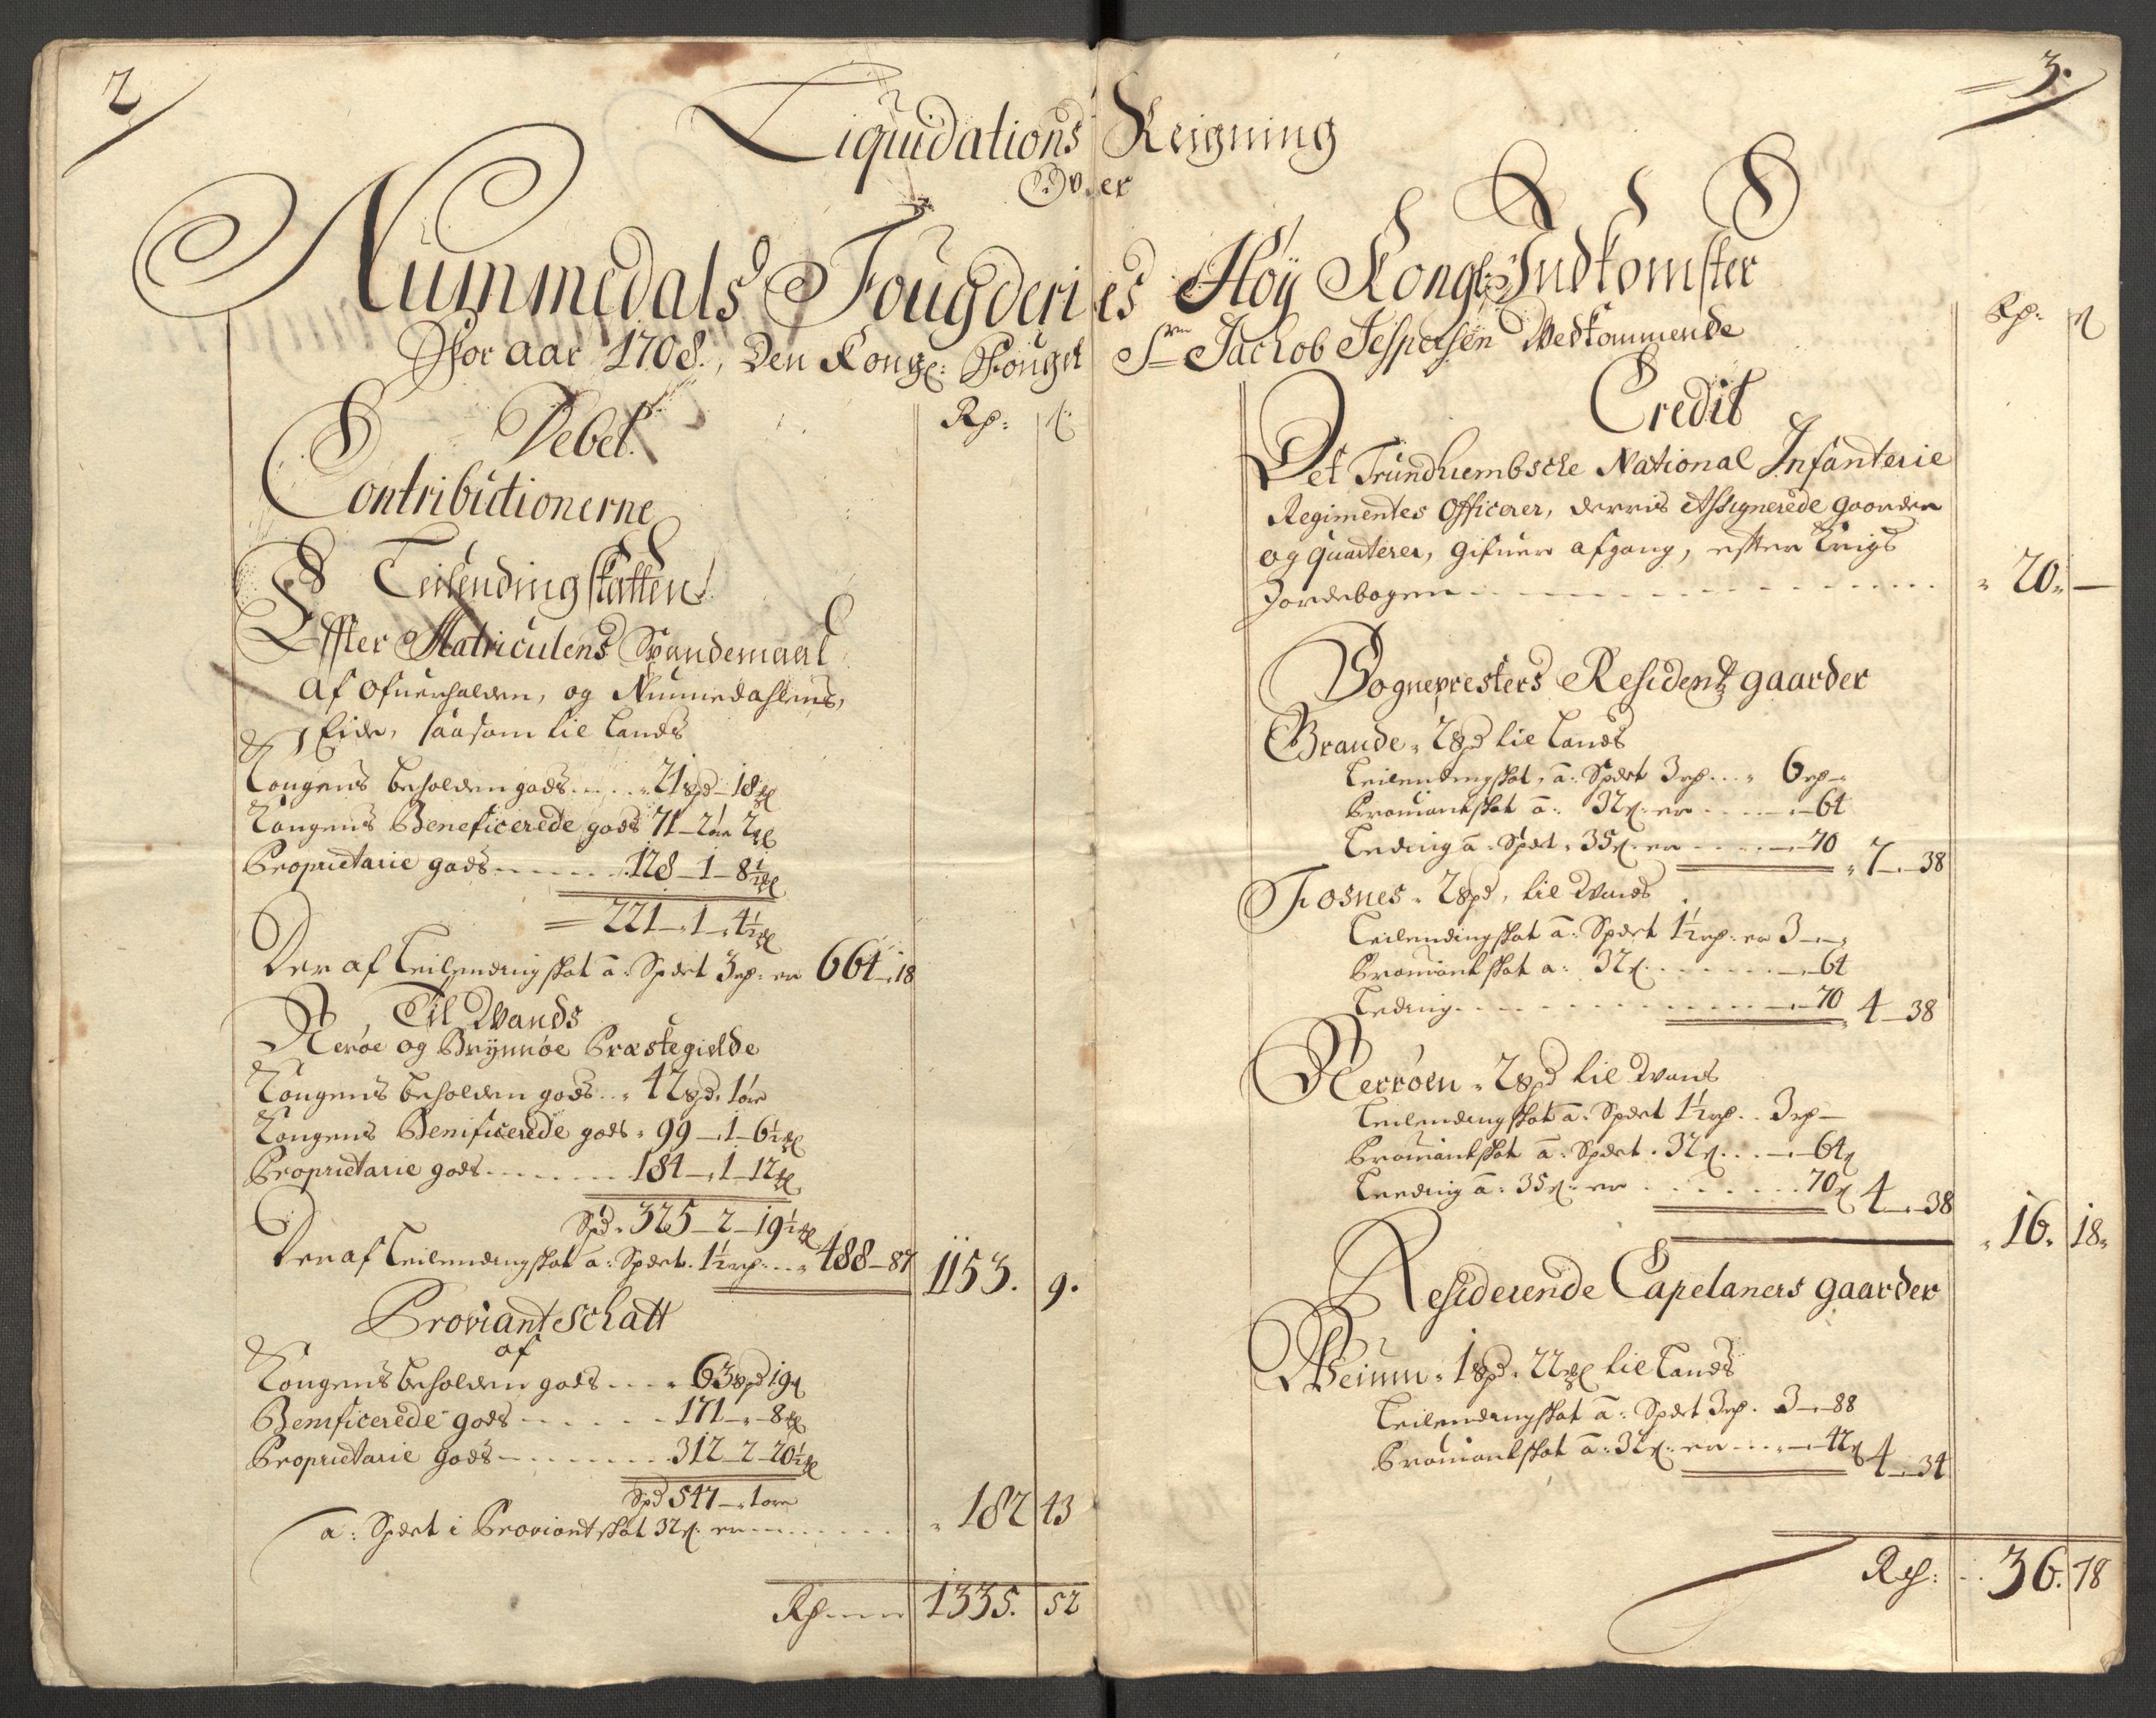 2
3.
Liquidations Reigning
Over
Nummedals Fougderies Høy Kongl: Indkomster
For aar 1708., Den Kongl: Fouget Sr Jachob Jespersen Vedkommende
Debet.
Rd: ß
Contributionerne
Leilending skatten
Effter Matriculens Spandemaal
af Ofuerhalden, og Nummedahlens,
Eide, saasom til Lands
Kongens beholden gods .... 21 spd - 18 ml
Kongens Beneficerede gods 71 - 2 øre 2 ml
Proprietarie gods ...... 128 - 1 - 8½ ml
221 - 1 - 4½ ml
Der af Leilending skat a: Spdet 3 rd: er 664 - 18
Til Vands
Nerøe og Brynnøe Præstegielde
Kongens beholden gods .. 42 spd. 1 øre
Kongens Benificerede gods 99 - 1 - 6½ ml
Proprietarie gods ...... 184 - 1 - 12 ml
Spd. 325 - 2 - 19½ ml
Der af Leilendingskat a: Spdet. 1½ rd: ... 488 - 87 1153. 9.
Proviant Schatt
af
Kongens beholden gods ... 63 spd 19 ml
Benificerede gods ...... 171 - - 8 ml
Proprietarie gods ....... 312 - 2 - 20½ ml
Spd 547 - 1 øre
a: Spdet i Proviantskat 32 ß: er ........ 182 43
Rd ---- 1335. 52
Rd: ß
Credit
Det Trundhiembsche National Infanterie
Regimentes Officerer, derris Assignerede gaarder
og quarterer, gifuer afgang, efter Krigs
Jordebogen ................ 20. -
Sognepresters Residentz gaarder
Brande. 2 spd til Lands
Leilendingskat, a: Spdet 3 rd ... 6 rd -
Proviantskat a: 32 ß: er ..... - 64
Leding a: Spdet. 35 ß: er ..... - 70 7 - 38
Fosnes. 2 spd, til Vands
Leilendingskat a: Spdet 1½ rd: er 3 - -
Proviantskat a: 32 ß ........ - 64
Leding ............. - 70 4 - 38
Nerrøen. 2 spd til Vands
Leilendingskat a: Spdet 1½ rd .. 3 rd -
Proviantskat a: Spdet. 32 ß ... - 64 ß
Leeding a: 35 ß: er ....... 70 ß 4 - 38
16. 18.
Residerende Capelaners gaarder
Weium. 1 spd. 22 ml til Lands
Leilendingskat a: Spdet 3 rd. 3 - 88
Proviantskat a: 32 ß: er .... - 42 ß 4 - 34
Rd: .. 36. 18